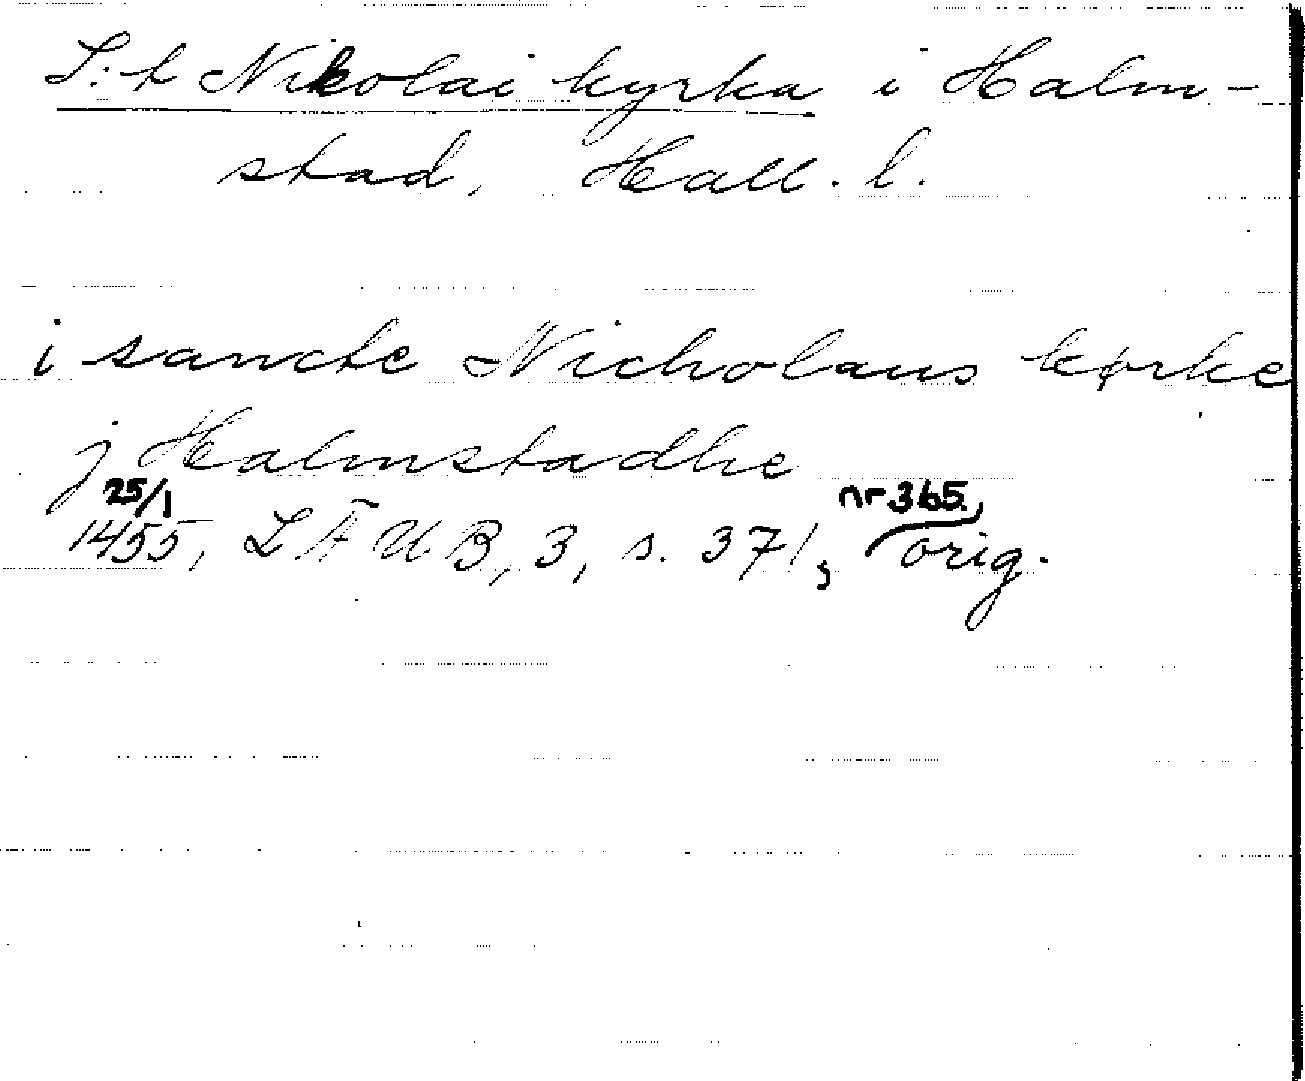 S:t Nikolai kyrka i Halm-
stad, Hall. l.
i sancte Nicholaus kørke
j Halmstadhe
25/1 1455, LÄUB, 3, s. 371, nr 365, orig.